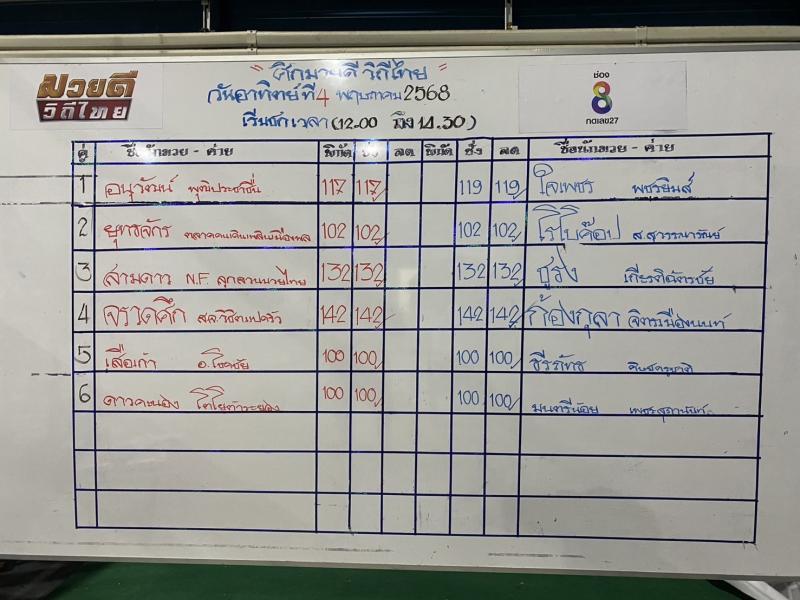 มวยดี
วิถีไทย
" ศึกมวยดีวิถีไทย "
วันอาทิตย์ที่ 4 พฤษภาคม 2568
เริ่มชกเวลา (12.00 ถึง 14.30)
ช่อง
8
กดเลข27
คู่ ชื่อนักมวย - ค่าย พิกัด ชั่ง ลด พิกัด ชั่ง ลด ชื่อนักมวย - ค่าย
1 อนุวัฒน์ พุฒิประชาชื่น 117 117 119 119 ใจเพชร เพชรยินส์
2 ยุทธจักร 102 102 102 102 โรโบค๊อป ส.สุวรรณารัณย์
3 สามดาว N.F. ลูกสวนมวยไทย 132 132 132 132 ชูรุ่ง เกียรติฉัตรชัย
4 จรวดศึก 142 142 142 142 ก้องกุลา จิตรเมืองนนท์
5 เสือเก้า อ.โชคชัย 100 100 100 100 ธีรภัทร
6 ดาวคะนอง โตโยต้าระยอง 100 100 100 100 มนตรีน้อย